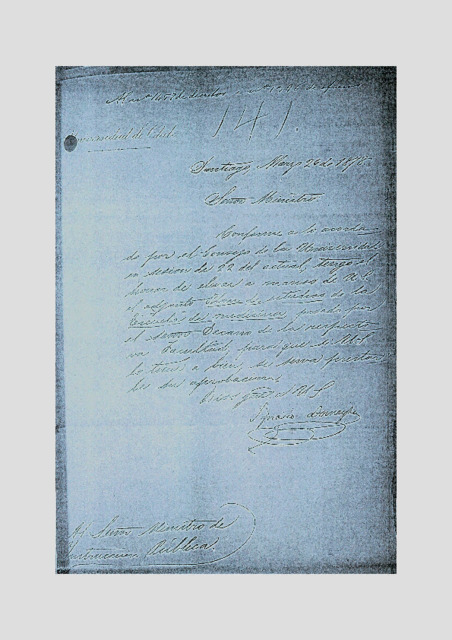 141.
Universidad de Chile
Santiago, Marzo 26 de 18
Señor Ministro.
Conforme a lo acorda
do por el Consejo de la Universidad
en sesion de 22 del actual, tengo el
honor de elevar a manos de U.S.
el adjunto de estudios de la
Escuela de medicina, pasado por
el señor Decano de la respecti
va Facultad, para que si U.S.
lo tiene a bien, se sirva prestar
les su aprobacion.
Dios gue a U.S.
Ignacio Domeyko
Al Señor Ministro de
Instruccion Pública.